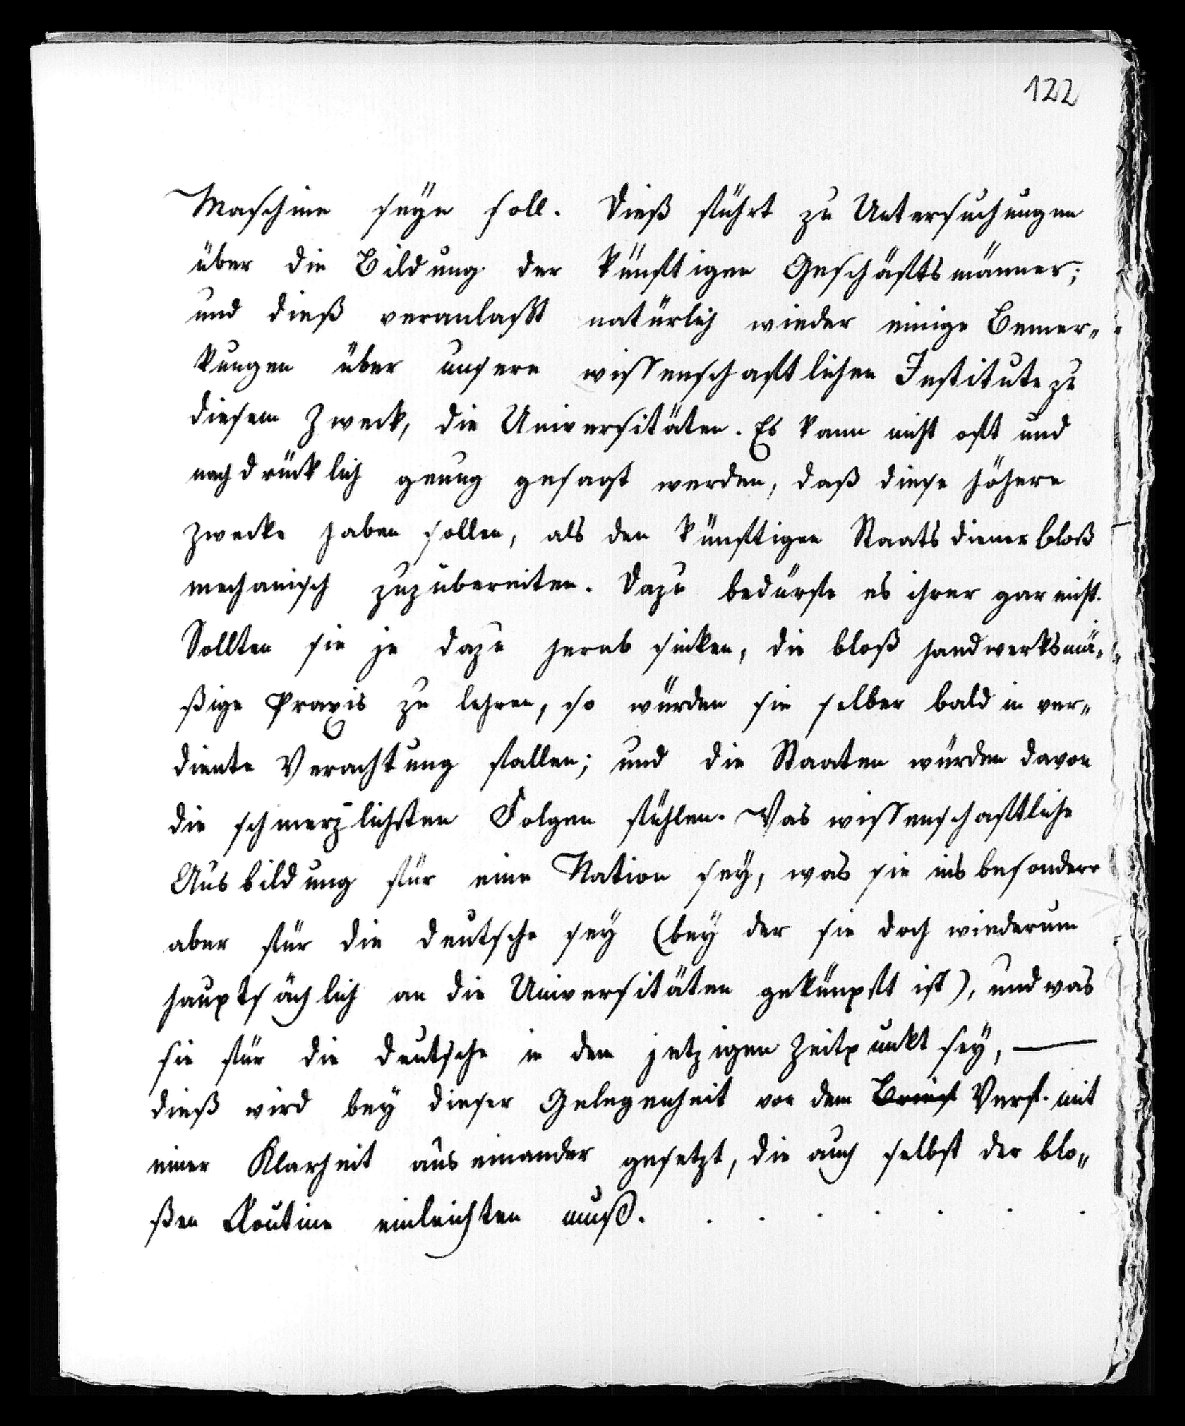 122
Maschine seyn soll. Dieß führt zu Untersuchungen
über die Bildung der künftigen Geschäftsmänner;
und dieß veranlaßt natürlich wieder einige Bemer„
kungen über unsere wissenschaftlichen Institute zu
diesem Zweck, die Universitäten. Es kann nicht oft und
nachdrücklich genug gesagt werden, daß diese höhere
Zwecke haben sollen, als den künftigen Staatsdiener bloß
mechanisch zuzubereiten. Dazu bedürfte es ihrer gar nicht.
Sollten sie je dazu herab sinken, die bloß handwerksmä„
ßige Praxis zu lehren, so würden sie selber bald in ver„
diente Verachtung fallen; und die Staaten würden davon
die schmerzlichsten Folgen fühlen. Was wissenschaftliche
Ausbildung für eine Nation sey, was sie ins besondere
aber für die deutsche sey (bey der sie doch wiederum
hauptsächlich an die Universitäten geknüpft ist), und was
sie für die deutsche in dem jetzigen Zeitpunkt sey, —
dieß wird bey dieser Gelegenheit von dem Brief Verf. mit
einer Klarheit aus einander gesetzt, die auch selbst der blo„
ßen Routine einleuchten muß. . . . . . . .